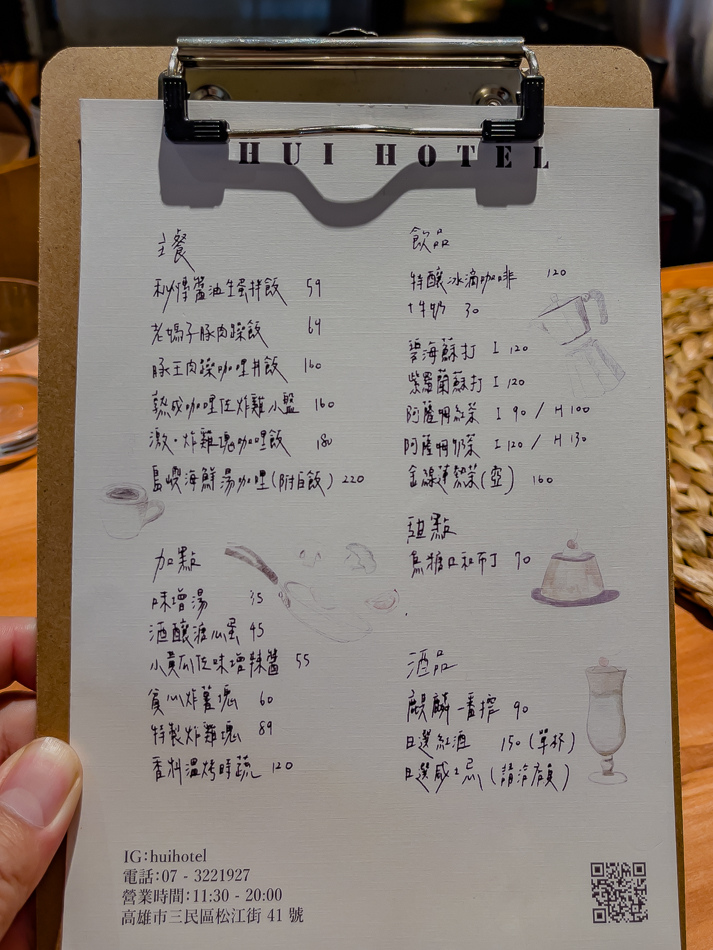 HUI HOTEL
主餐
醬油生蛋拌飯 59
老媽子豚肉燥飯 64
豚王肉燥咖哩丼飯 160
熟成咖哩佐炸雞小盤 160
激·炸雞塊咖哩飯 180
島嶼海鮮湯咖哩(附白飯) 220
加點
味增湯 35
酒釀溏心蛋 45
小黃瓜佐味增辣醬 55
貪心炸薯塊 60
特製炸雞塊 89
香料溫烤時蔬 120
飲品
特釀冰滴咖啡 120
+牛奶 30
碧海蘇打 I 120
紫羅蘭蘇打 I 120
阿薩姆紅茶 I 90 / H 100
阿薩姆奶茶 I 120 / H 130
金線蓮熱茶(壺) 160
甜點
焦糖口和布丁 70
酒品
麒麟一番搾 90
日選紅酒 150 (單杯)
日選威士忌 (請洽店員)
IG:huihotel
電話:07 - 3221927
營業時間:11:30 - 20:00
高雄市三民區松江街 41 號